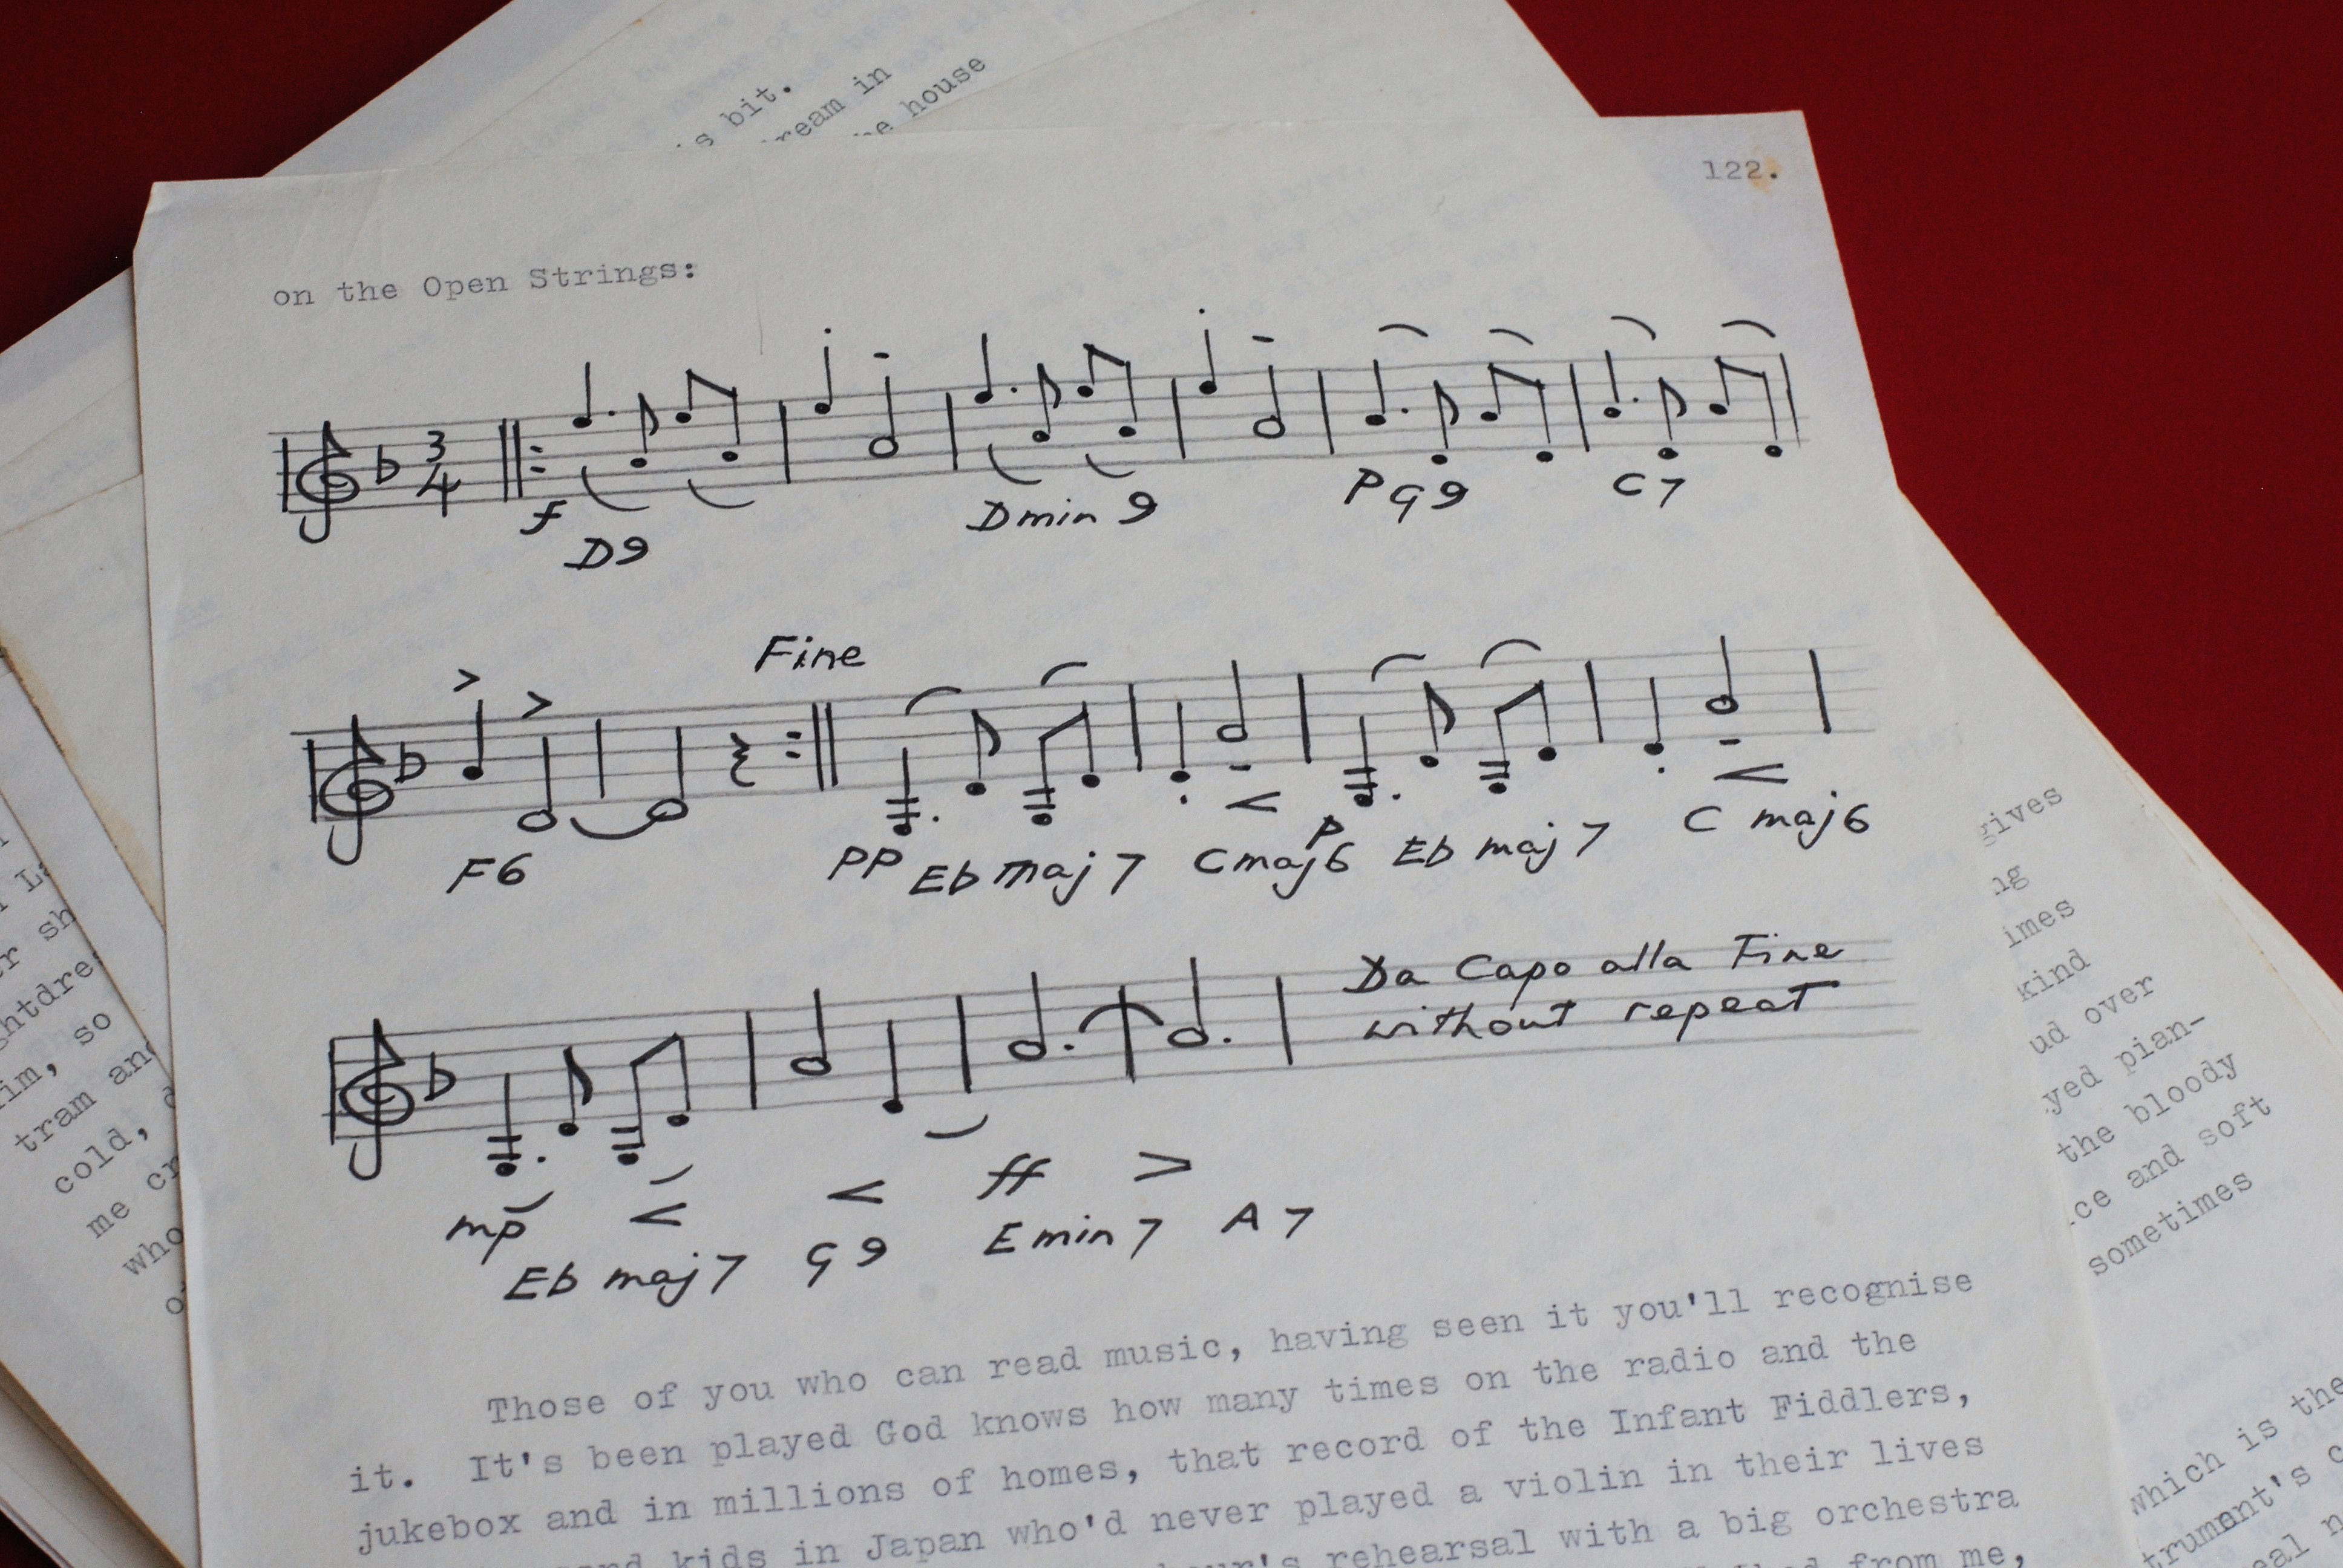 bit.
in
house
122.
on the Open Strings:
3
4
f
D9
Dmin 9
P G9
C7
Fine
F6
PP Eb maj 7
Cmaj6
P
Eb maj 7
C maj6
Da Capo alla Fine
without repeat
mp
ff
Eb maj7 G9 Emin7 A7
Those of you who can read music, having seen it you'll recognise
it. It's been played God knows how many times on the radio and the
jukebox and in millions of homes, that record of the Infant Fiddlers,
kids in Japan who'd never played a violin in their lives
rehearsal with a big orchestra
from me,
so
tram
cold,
me
gives
kind
over
the bloody
and soft
sometimes
which is the